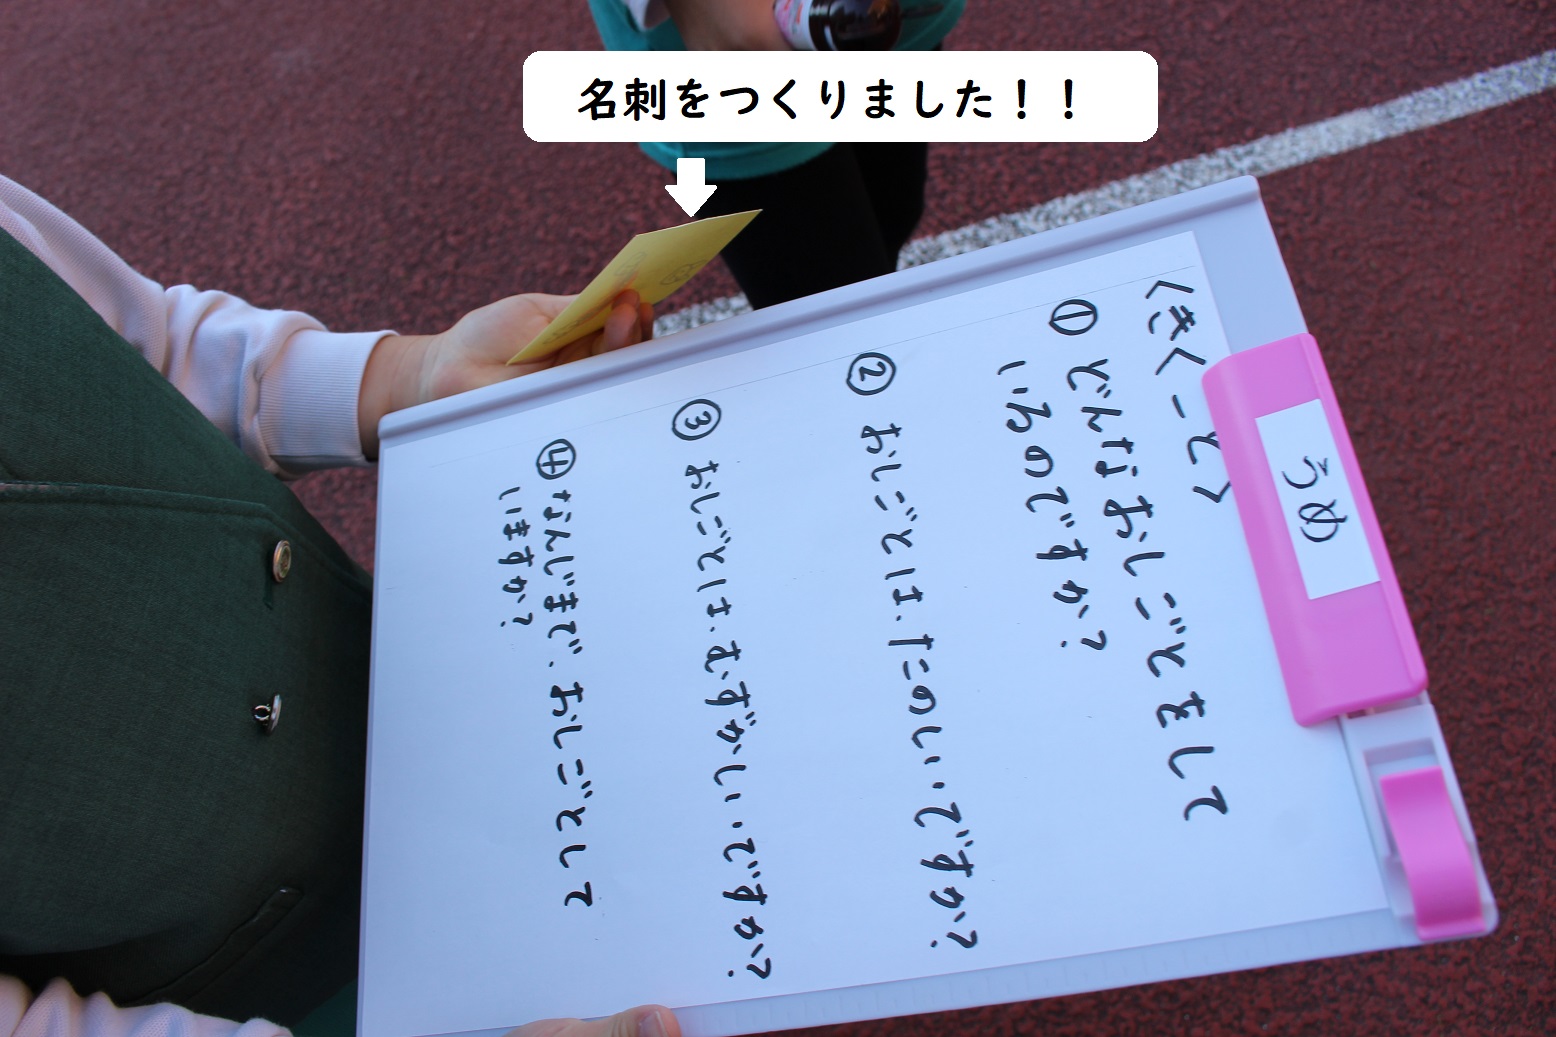 名刺をつくりました！！
<きくこと>
① どんなおしごとをして
いるのですか？
② おしごとは、たのしいですか？
③ おしごとは、むずかしいですか？
④ なんじまで、おしごとして
いますか？
うめ